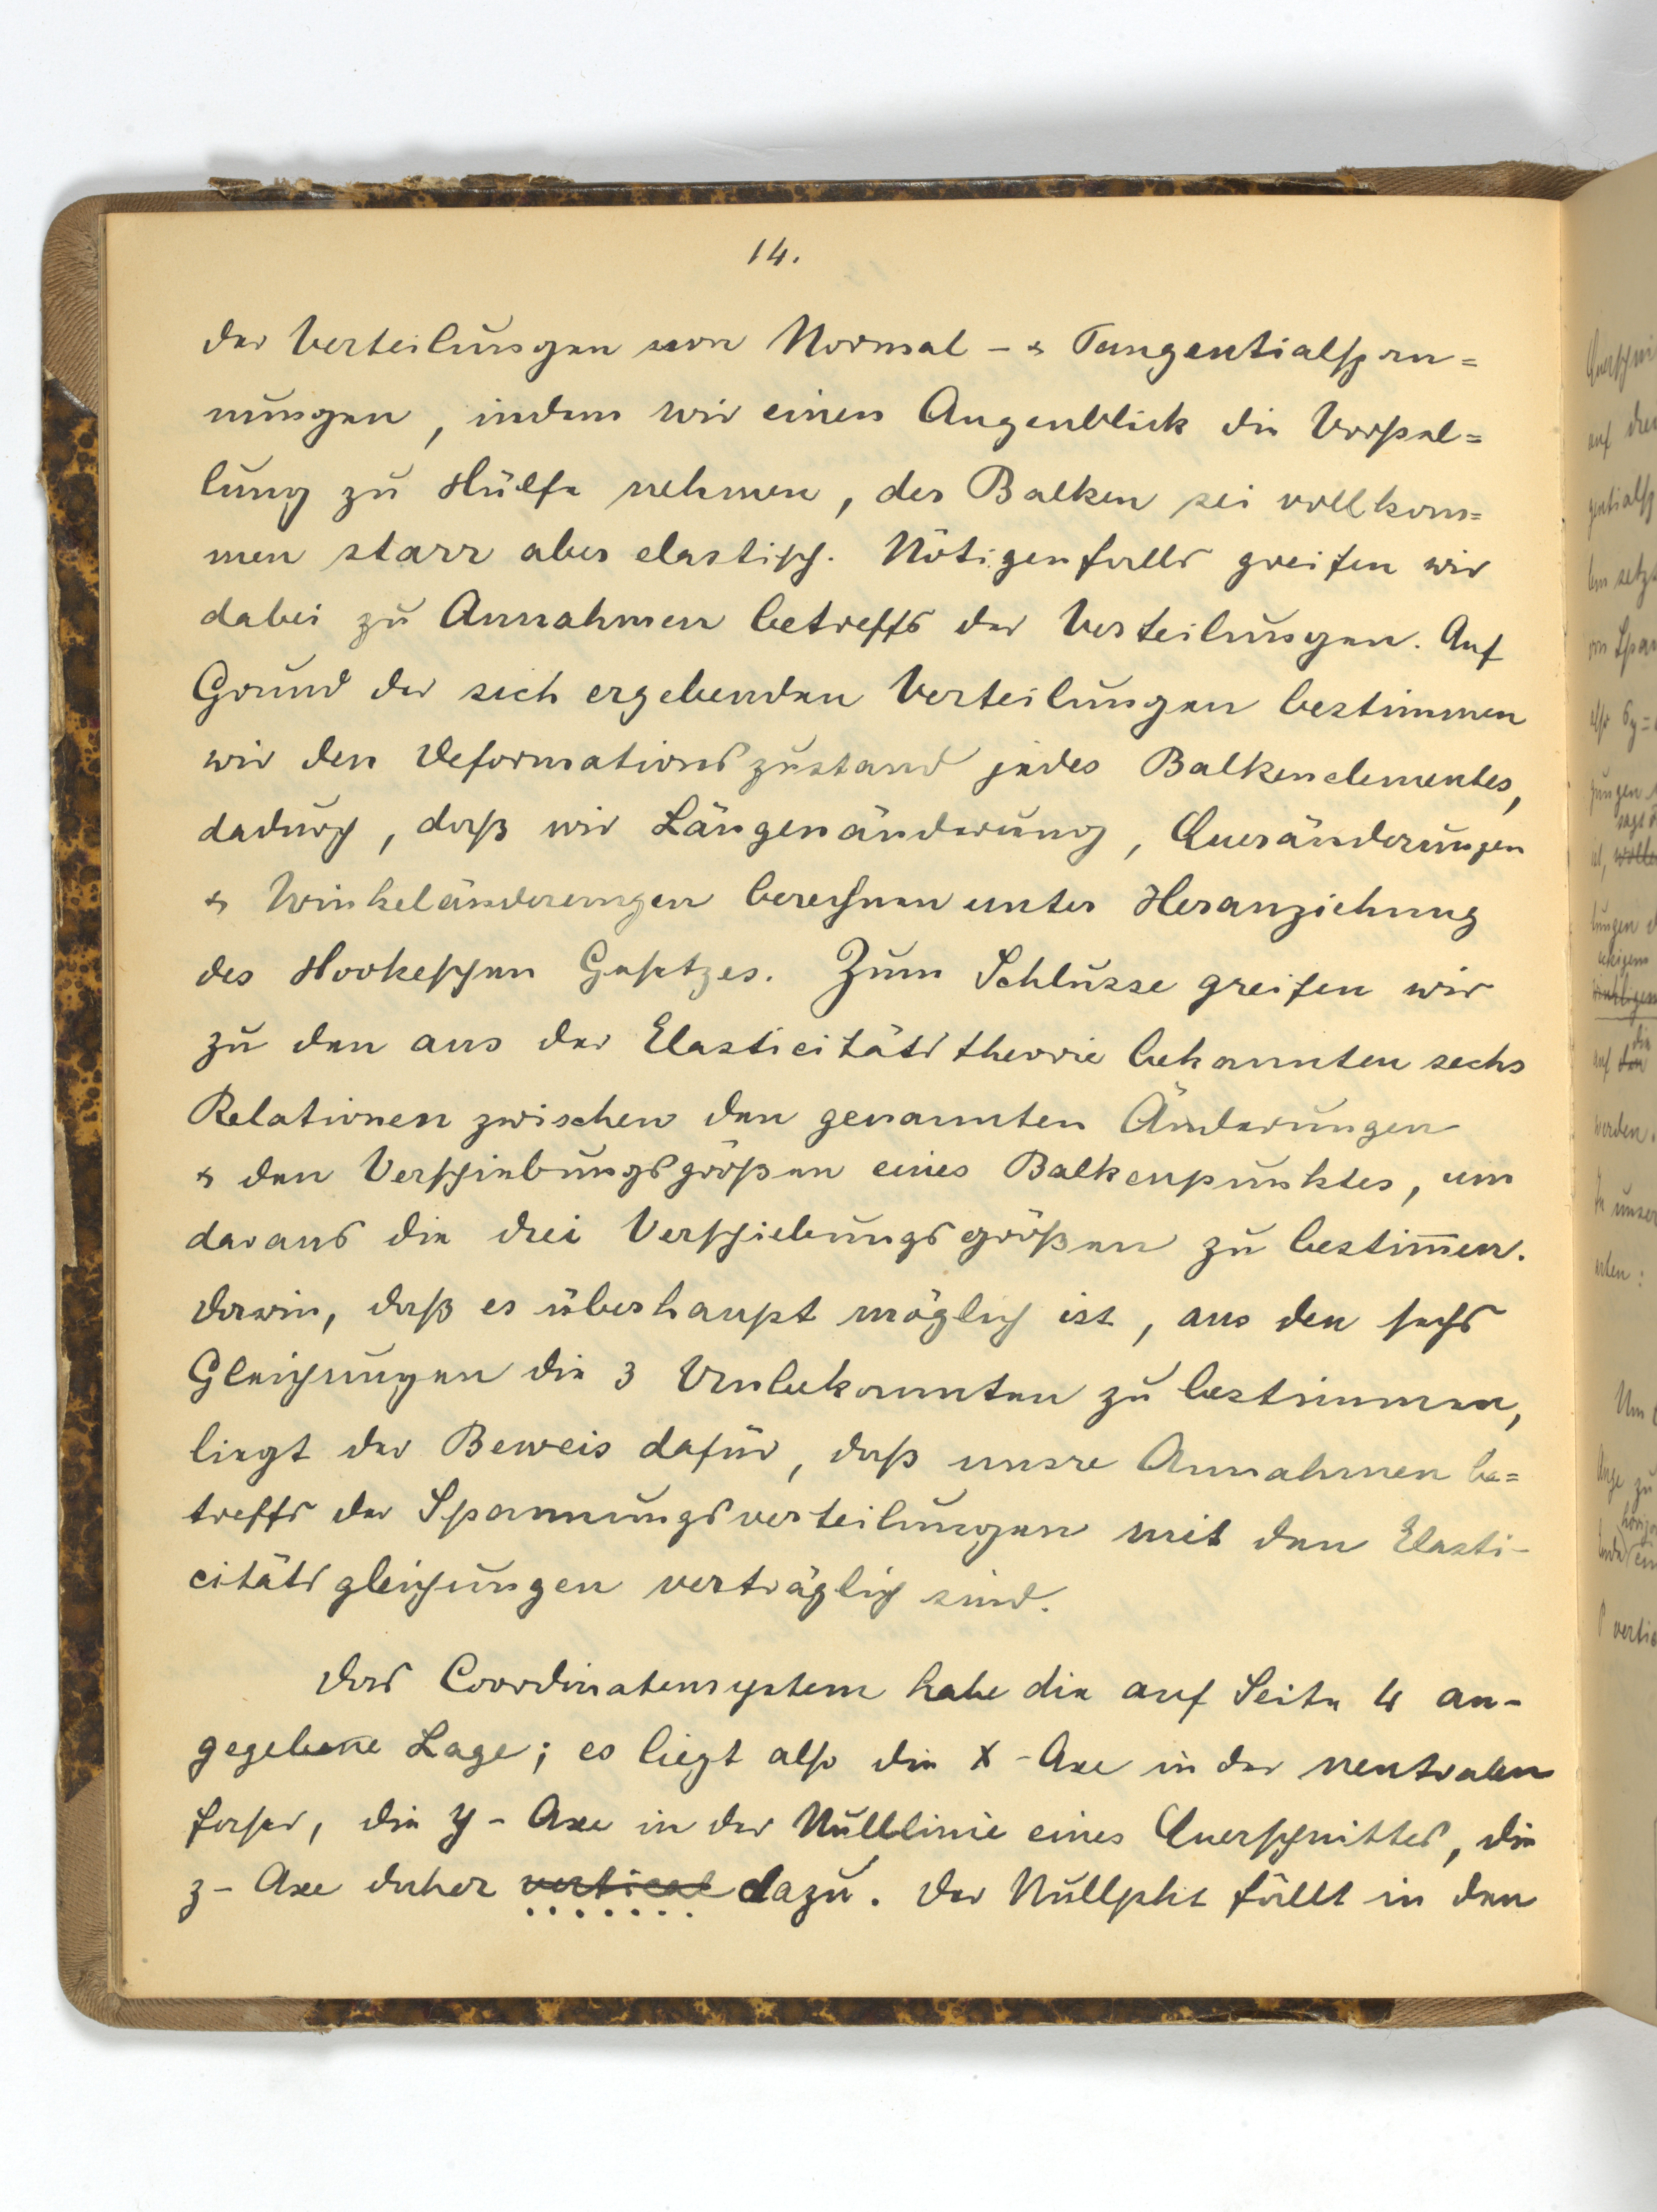 14.
der Verteilungen von Normal- & Tangentialspan=
nungen, indem wir einen Augenblick die Vorstel=
lung zu Hülfe nehmen, der Balken sei vollkom=
men starr aber elastisch. Nötigenfalls greifen wir
dabei zu Annahmen betreffs der Verteilungen. Auf
Grund der sich ergebenden Verteilungen bestimmen
wir den Deformationszustand jedes Balkenelementes,
dadurch, daß wir Längenänderung, Queränderungen
& Winkeländerungen berechnen unter Heranziehung
des Hookeschen Gesetzes. Zum Schlusse greifen wir
zu den aus der Elasticitätstheorie bekannten sechs
Relationen zwischen den genannten Änderungen
& den Verschiebungsgrößen eines Balkenpunktes, um
daraus die drei Verschiebungsgrößen zu bestim̅en.
Darin, daß es überhaupt möglich ist, aus den sechs
Gleichungen die 3 Unbekannten zu bestimmen,
liegt der Beweis dafür, daß unsre Annahmen be=
treffs der Spannungsverteilungen mit den Elasti-
citätsgleichungen verträglich sind.
Das Coordinatensystem habe die auf Seite 4 an-
gegebene Lage; es liegt also die x-Axe in der neutralen
Faser, die y-Axe in der Nulllinie eines Querschnittes, die
z-Axe daher vertical dazu. Der Nullpkt fällt in den